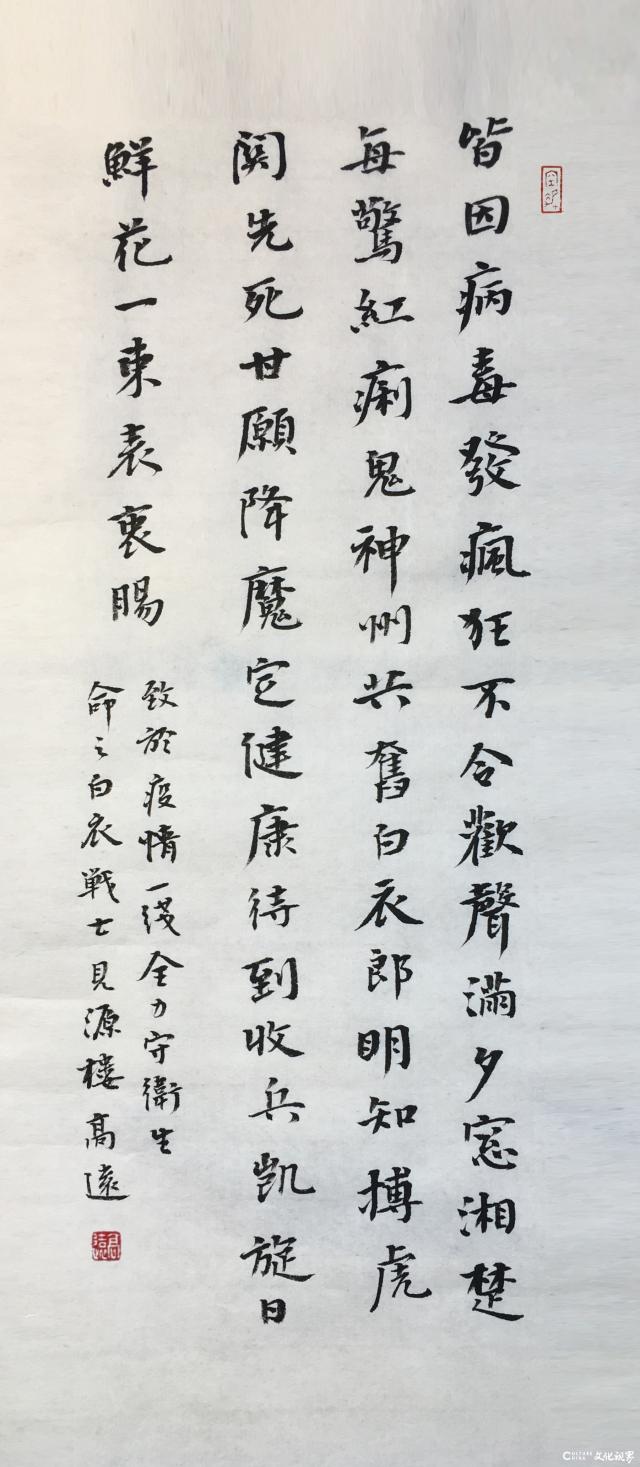 皆因病毒發瘋狂不令歡聲滿夕窓湘楚
每驚紅痢鬼神州共奮白衣郎明知搏虎
関先死甘願降魔定健康待到收兵凱旋日
鮮花一束表衷腸
致於疫情一綫全力守衛生
命之白衣戦士見源樓高遠
CULTURE CHINA 文化视界